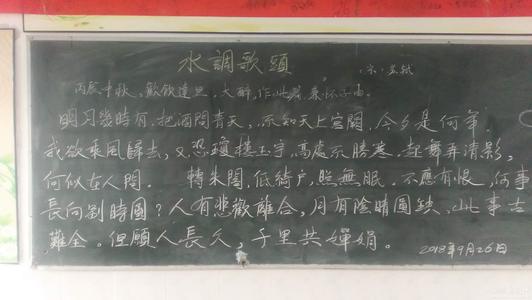 水調歌頭
·宋·苏轼
丙辰中秋，歡飲達旦，大醉，作此篇，兼怀子由。
明月幾時有，把酒問青天，不知天上宮闕，今夕是何年。
我欲乘風歸去，又恐瓊樓玉宇，高處不勝寒，起舞弄清影，
何似在人間。 轉朱閣，低綺户，照無眠。不應有恨，何事
長向别時圓？人有悲歡離合，月有陰晴圓缺，此事古
難全。但願人長久，千里共嬋娟。
2018年9月26日